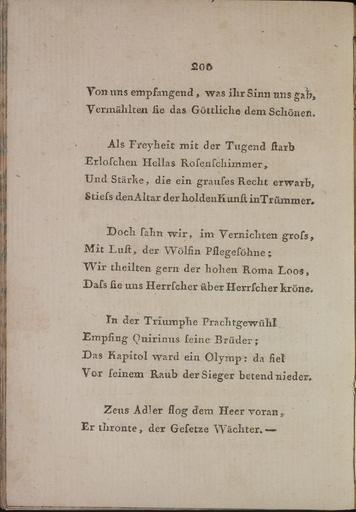 206
Von uns empfangend, was ihr Sinn uns gab,
Vermählten ſie das Göttliche dem Schönen.
Als Freyheit mit der Tugend ſtarb
Erloſchen Hellas Roſenſchimmer,
Und Stärke, die ein grauſes Recht erwarb,
Stieſs den Altar der holden Kunſt in Trümmer.
Doch ſahn wir, im Vernichten groſs,
Mit Luſt, der Wölfin Pflegeſöhne;
Wir theilten gern der hohen Roma Loos,
Daſs ſie uns Herrſcher über Herrſcher kröne.
In der Triumphe Prachtgewühl
Empfing Quirinus ſeine Brüder;
Das Kapitol ward ein Olymp: da fiel
Vor ſeinem Raub der Sieger betend nieder.
Zeus Adler flog dem Heer voran,
Er thronte, der Geſetze Wächter. —